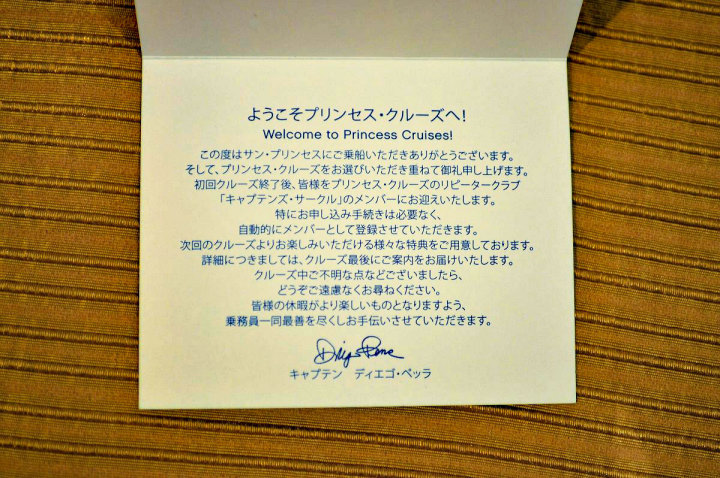 ようこそプリンセス・クルーズへ！
Welcome to Princess Cruises!
この度はサン・プリンセスにご乗船いただきありがとうございます。
そして、プリンセス・クルーズをお選びいただき重ねて御礼申し上げます。
初回クルーズ終了後、皆様をプリンセス・クルーズのリピータークラブ
「キャプテンズ・サークル」のメンバーにお迎えいたします。
特にお申し込み手続きは必要なく、
自動的にメンバーとして登録させていただきます。
次回のクルーズよりお楽しみいただける様々な特典をご用意しております。
詳細につきましては、クルーズ最後にご案内をお届けいたします。
クルーズ中ご不明な点などございましたら、
どうぞご遠慮なくお尋ねください。
皆様の休暇がより楽しいものとなりますよう、
乗務員一同最善を尽くしお手伝いさせていただきます。
キャプテン　ディエゴ・ペッラ